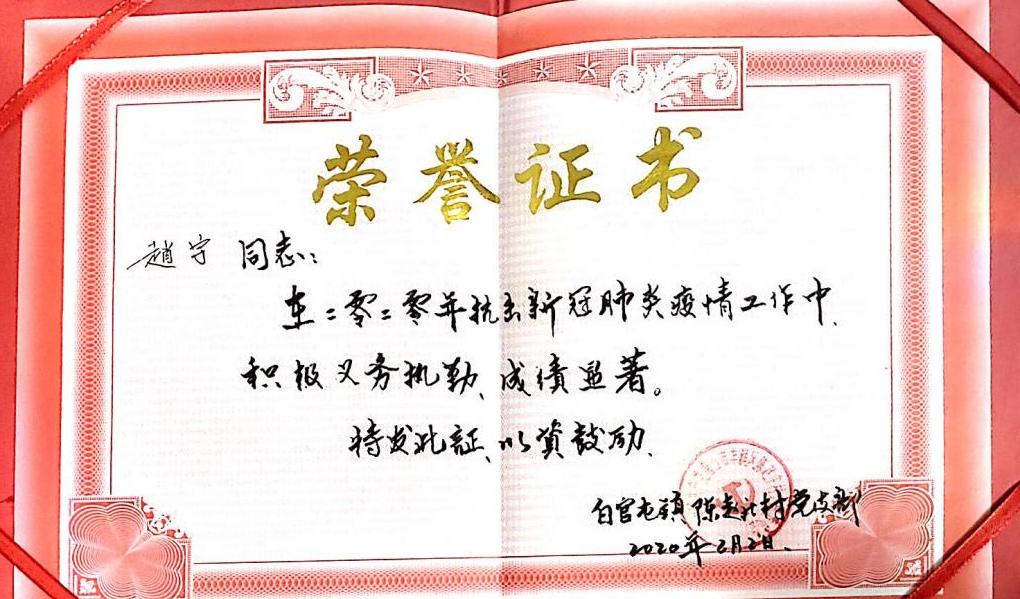 荣誉证书
趙宇 同志：
在二零二零年抗击新冠肺炎疫情工作中、
积极义务执勤、成绩显著。
特发此証、以资鼓励、
白官屯镇 陈赵社村党支部
2020年2月2日、